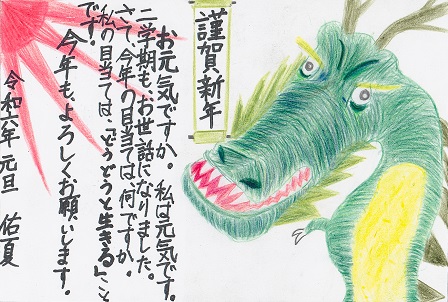 謹賀新年
お元気ですか。私は元気です。
二学期も、お世話になりました。
さて、今年の目当ては何ですか。
私の目当ては、「どうどうと生きる」こと
です。
今年も、よろしくお願いします。
令和六年 元旦 佑夏